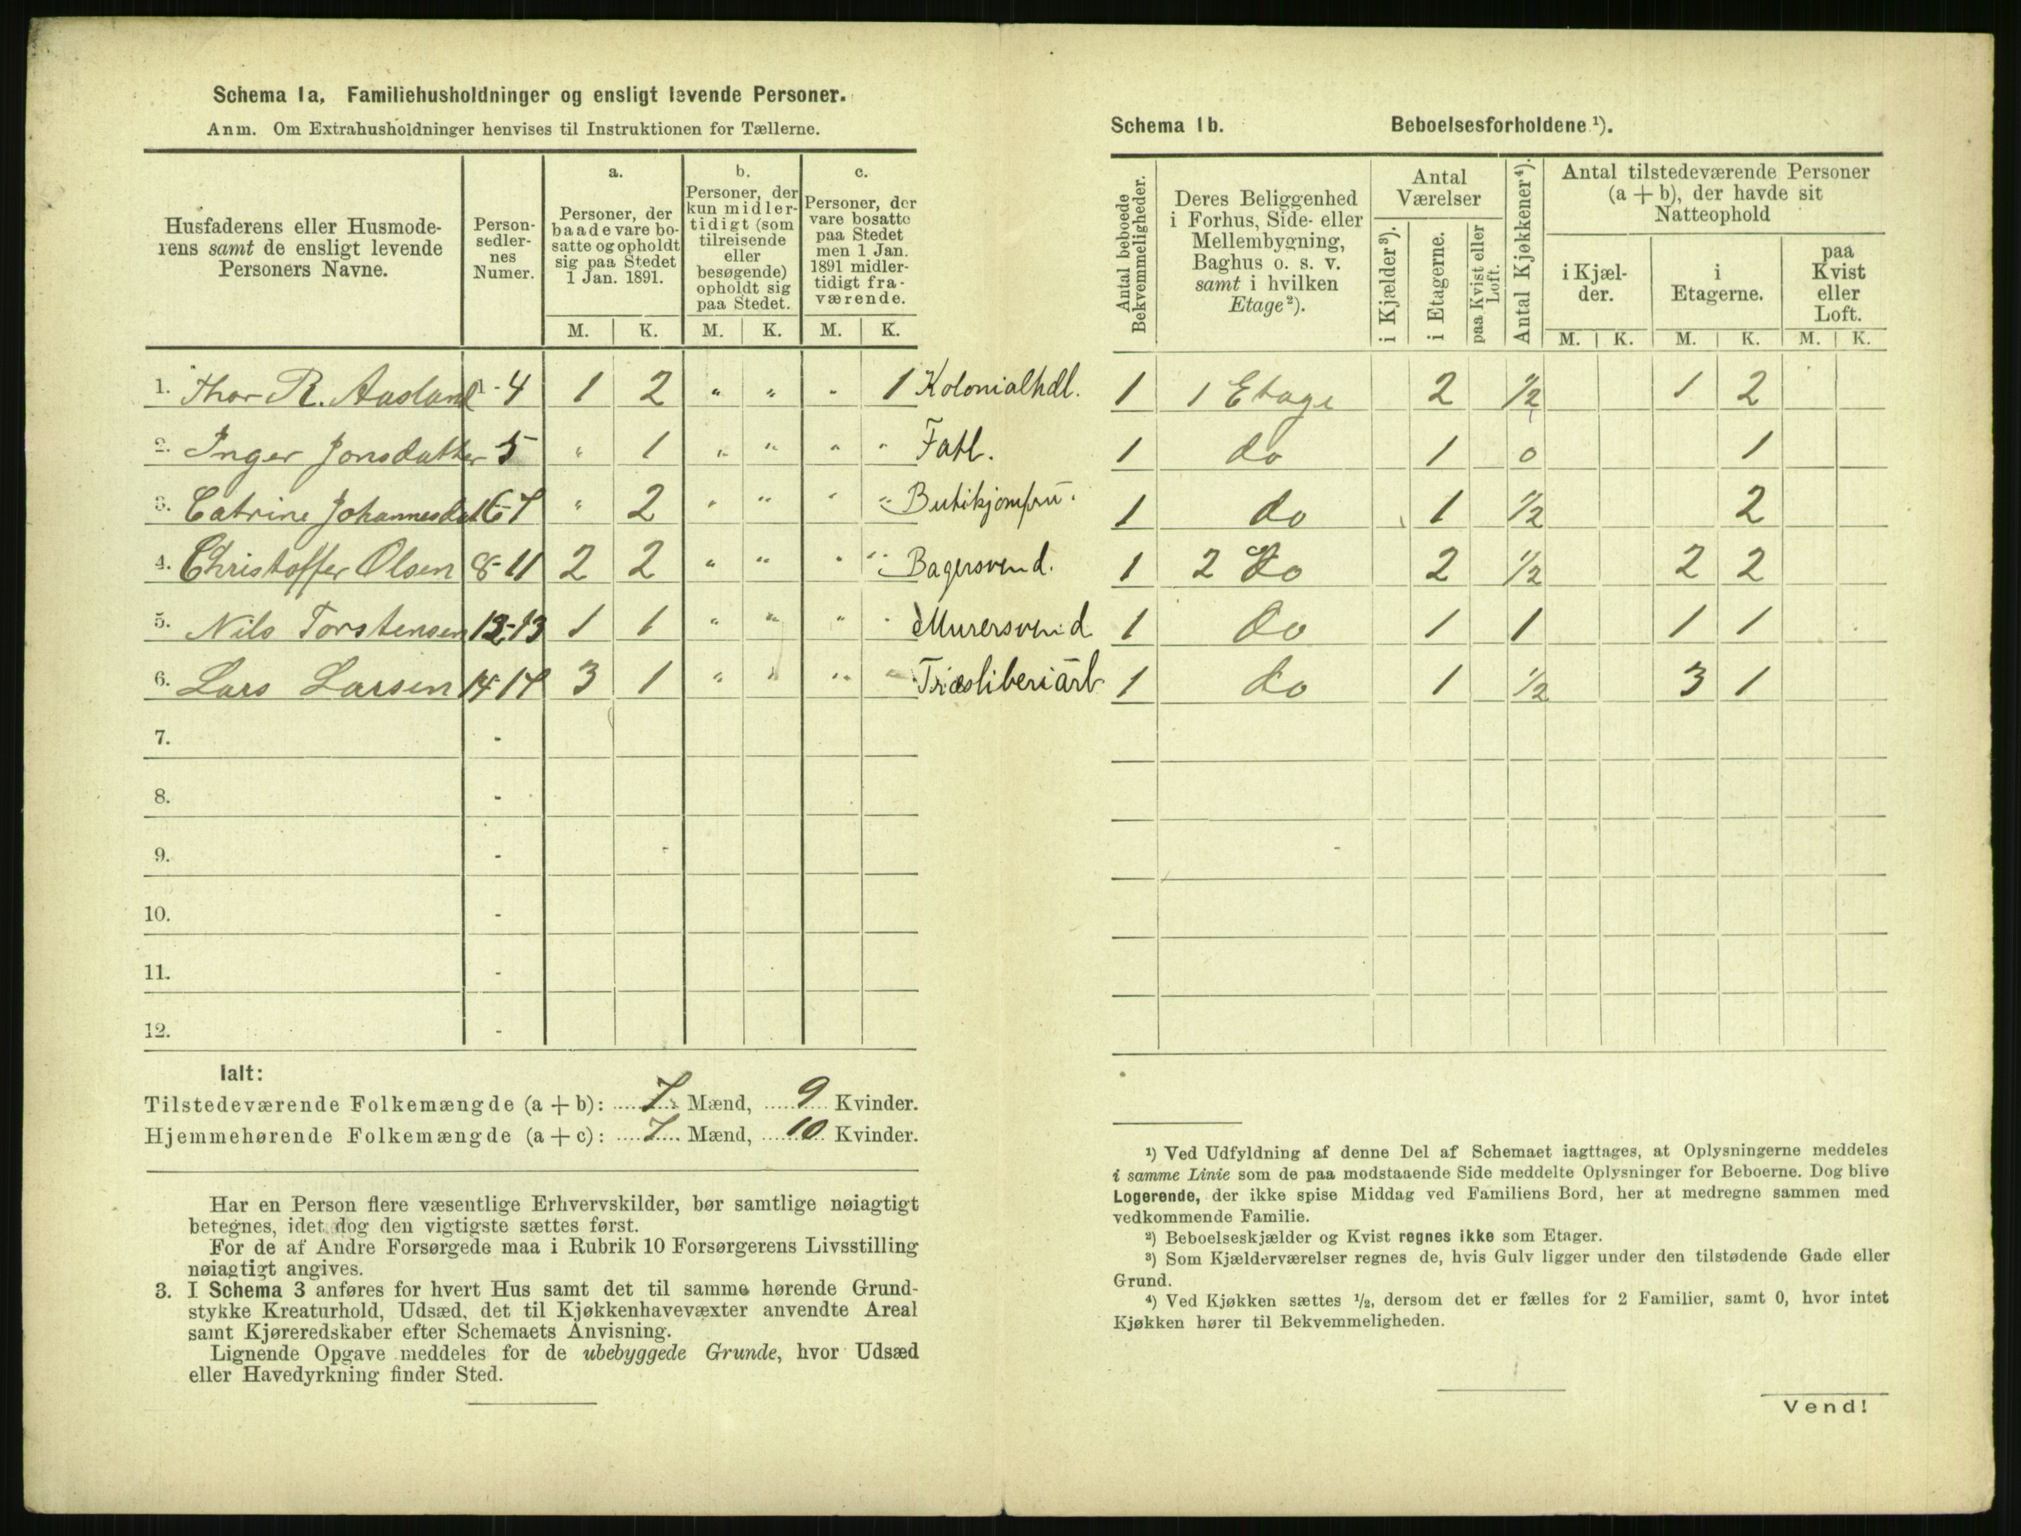 Schema 1a, Familiehusholdninger og ensligt levende Personer.
Anm. Om Extrahusholdninger henvises til Instruktionen for Tællerne.
Husfaderens eller Husmode-
rens samt de ensligt levende
Personers Navne.
Person-
sedler-
nes
Numer.
a.
Personer, der
baade vare bo-
satte og opholdt
sig paa Stedet
1 Jan. 1891.
b.
Personer, der
kun midler-
tidigt (som
tilreisende
eller
besøgende)
opholdt sig
paa Stedet.
c.
Personer, der
vare bosatte
paa Stedet
men 1 Jan.
1891 midler-
tidigt fra-
værende.
M. K. M. K. M. K.
1. Thor R. Aasland 1-4 1 2 " " " 1 Kolonialhdl.
2. Inger Jonsdatter 5 " 1 " " " " Fatl.
3. Catrine Johannesdat 6-7 " 2 " " " " Butikjomfru.
4. Christoffer Olsen 8-11 2 2 " " " " Bagersvend.
5. Nils Torstensen 12-13 1 1 " " " " Murersvend
6. Lars Larsen 14-17 3 1 " " " " Træsliberiarb
7. -
8. -
9. -
10. -
11. -
12. -
Ialt:
Tilstedeværende Folkemængde (a + b): 7 Mænd, 9 Kvinder.
Hjemmehørende Folkemængde (a + c): 7 Mænd, 10 Kvinder.
Har en Person flere væsentlige Erhvervskilder, bør samtlige nøiagtigt
betegnes, idet dog den vigtigste sættes først.
For de af Andre Forsørgede maa i Rubrik 10 Forsørgerens Livsstilling
nøiagtigt angives.
3. I Schema 3 anføres for hvert Hus samt det til samme hørende Grund-
stykke Kreaturhold, Udsæd, det til Kjøkkenhavevæxter anvendte Areal
samt Kjøreredskaber efter Schemaets Anvisning.
Lignende Opgave meddeles for de ubebyggede Grunde, hvor Udsæd
eller Havedyrkning finder Sted.
Schema 1b. Beboelsesforholdene ¹).
Antal beboede
Bekvemmeligheder.
Deres Beliggenhed
i Forhus, Side- eller
Mellembygning,
Baghus o. s. v.
samt i hvilken
Etage ²).
Antal
Værelser
i Kjælder ³).
i Etagerne.
paa Kvist eller
Loft.
Antal Kjøkkener ⁴).
Antal tilstedeværende Personer
(a + b), der havde sit
Natteophold
i Kjæl-
der.
i
Etagerne.
paa
Kvist
eller
Loft.
M. K. M. K. M. K.
1 1 Etage 2 ½ 1 2
1 do 1 0 1
1 do 1 ½ 2
1 2 do 2 ½ 2 2
1 do 1 1 1 1
1 do 1 ½ 3 1
¹) Ved Udfyldning af denne Del af Schemaet iagttages, at Oplysningerne meddeles
i samme Linie som de paa modstaaende Side meddelte Oplysninger for Beboerne. Dog blive
Logerende, der ikke spise Middag ved Familiens Bord, her at medregne sammen med
vedkommende Familie.
²) Beboelseskjælder og Kvist regnes ikke som Etager.
³) Som Kjælderværelser regnes de, hvis Gulv ligger under den tilstødende Gade eller
Grund.
⁴) Ved Kjøkken sættes ½, dersom det er fælles for 2 Familier, samt 0, hvor intet
Kjøkken hører til Bekvemmeligheden.
Vend!